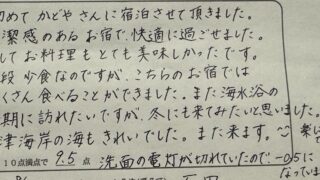 めて かどや さんに 宿泊させて頂きました。
潔感のある お宿で、快適に過ごせました。
してお料理もとても美味しかったです。
段 少食なのですが、こちらのお宿では
くさん 食べることができました。また海水浴の
期に訪れたいですが、冬にも来てみたいと思いました。
津海岸の海もきれいでした。また来ます。☺ 楽し
10点満点で 9.5 点 洗面の電灯が切れていたので、-0.5に
なっていま